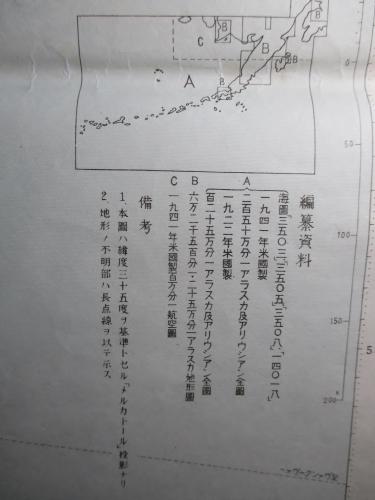 編纂資料
A
海圖三五〇三「三五〇五」「三五〇八」「一四〇一八」
一九四一年米國製
二百五十万分一アラスカ及アリウシアン全圖
一九二二年米國製
百二十五万分一アラスカ及アリウシアン全圖
B 六万二千五百分一・二十五万分一アラスカ地形圖
C 一九四一年米國製百万分一航空圖
備考
1、本圖ハ緯度三十五度ヲ基準トセル「メルカトール」投影ナリ
2、地形ノ不明部ハ長点線ヲ以テ示ス
C
B
B
A
B
B
B
0
50
100
150
200
5